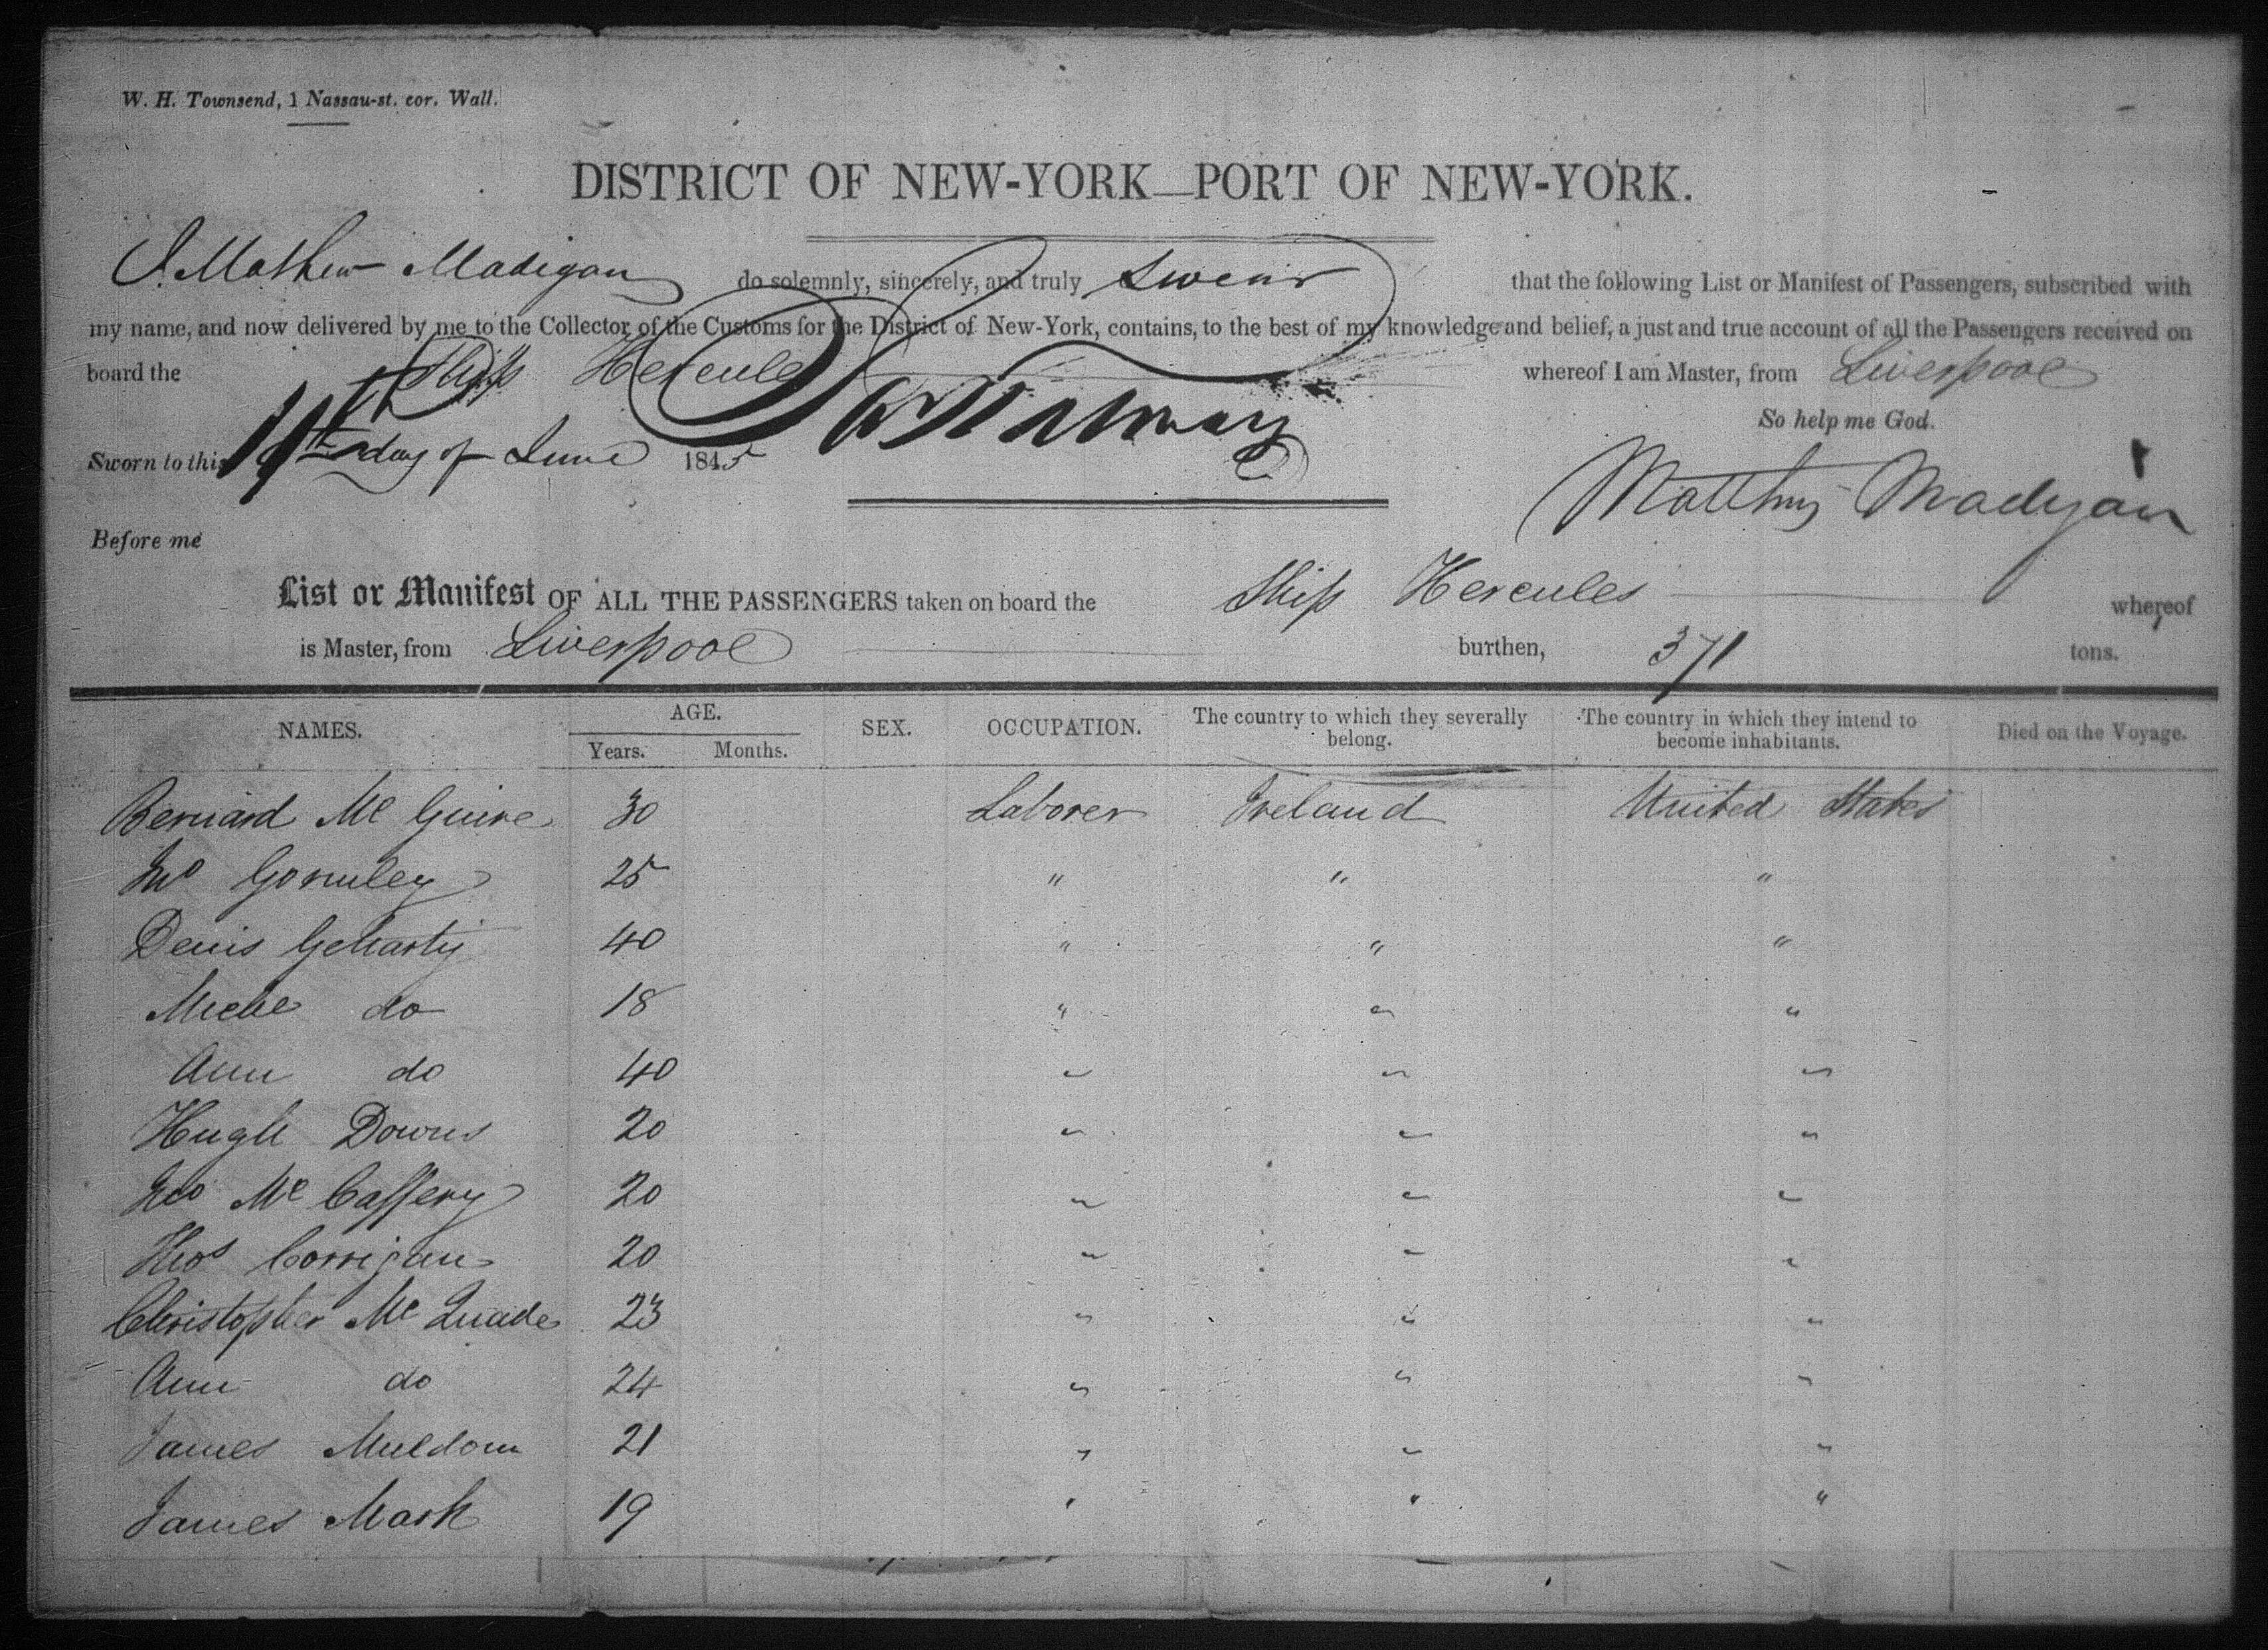 W. H. Townsend, 1 Nassau-st. cor. Wall.
DISTRICT OF NEW-YORK—PORT OF NEW-YORK.
I. Mathew Madigan do solemnly, sincerely, and truly Swear that the following List or Manifest of Passengers, subscribed with
my name, and now delivered by me to the Collector of the Customs for the District of New-York, contains, to the best of my knowledge and belief, a just and true account of all the Passengers received on
board the Ship Hercules whereof I am Master, from Liverpool
So help me God.
Sworn to this day of June 1845
Matthew Madigan
Before me
List or Manifest OF ALL THE PASSENGERS taken on board the Ship Hercules whereof
is Master, from Liverpool burthen, 371 tons.
NAMES. AGE. SEX. OCCUPATION. The country to which they severally belong. The country in which they intend to become inhabitants. Died on the Voyage.
Years. Months.
Bernard Mc Guire 30 Laborer Ireland United States
Jno Gormley 25 " " "
Denis Geharty 40 " " "
Miche do 18 " " "
Ann do 40 " " "
Hugh Downs 20 " " "
Jno Mc Caffery 20 " " "
Thos Corrigan 20 " " "
Christopher Mc Quade 23 " " "
Ann do 24 " " "
James Muldoon 21 " " "
James Mark 19 " " "